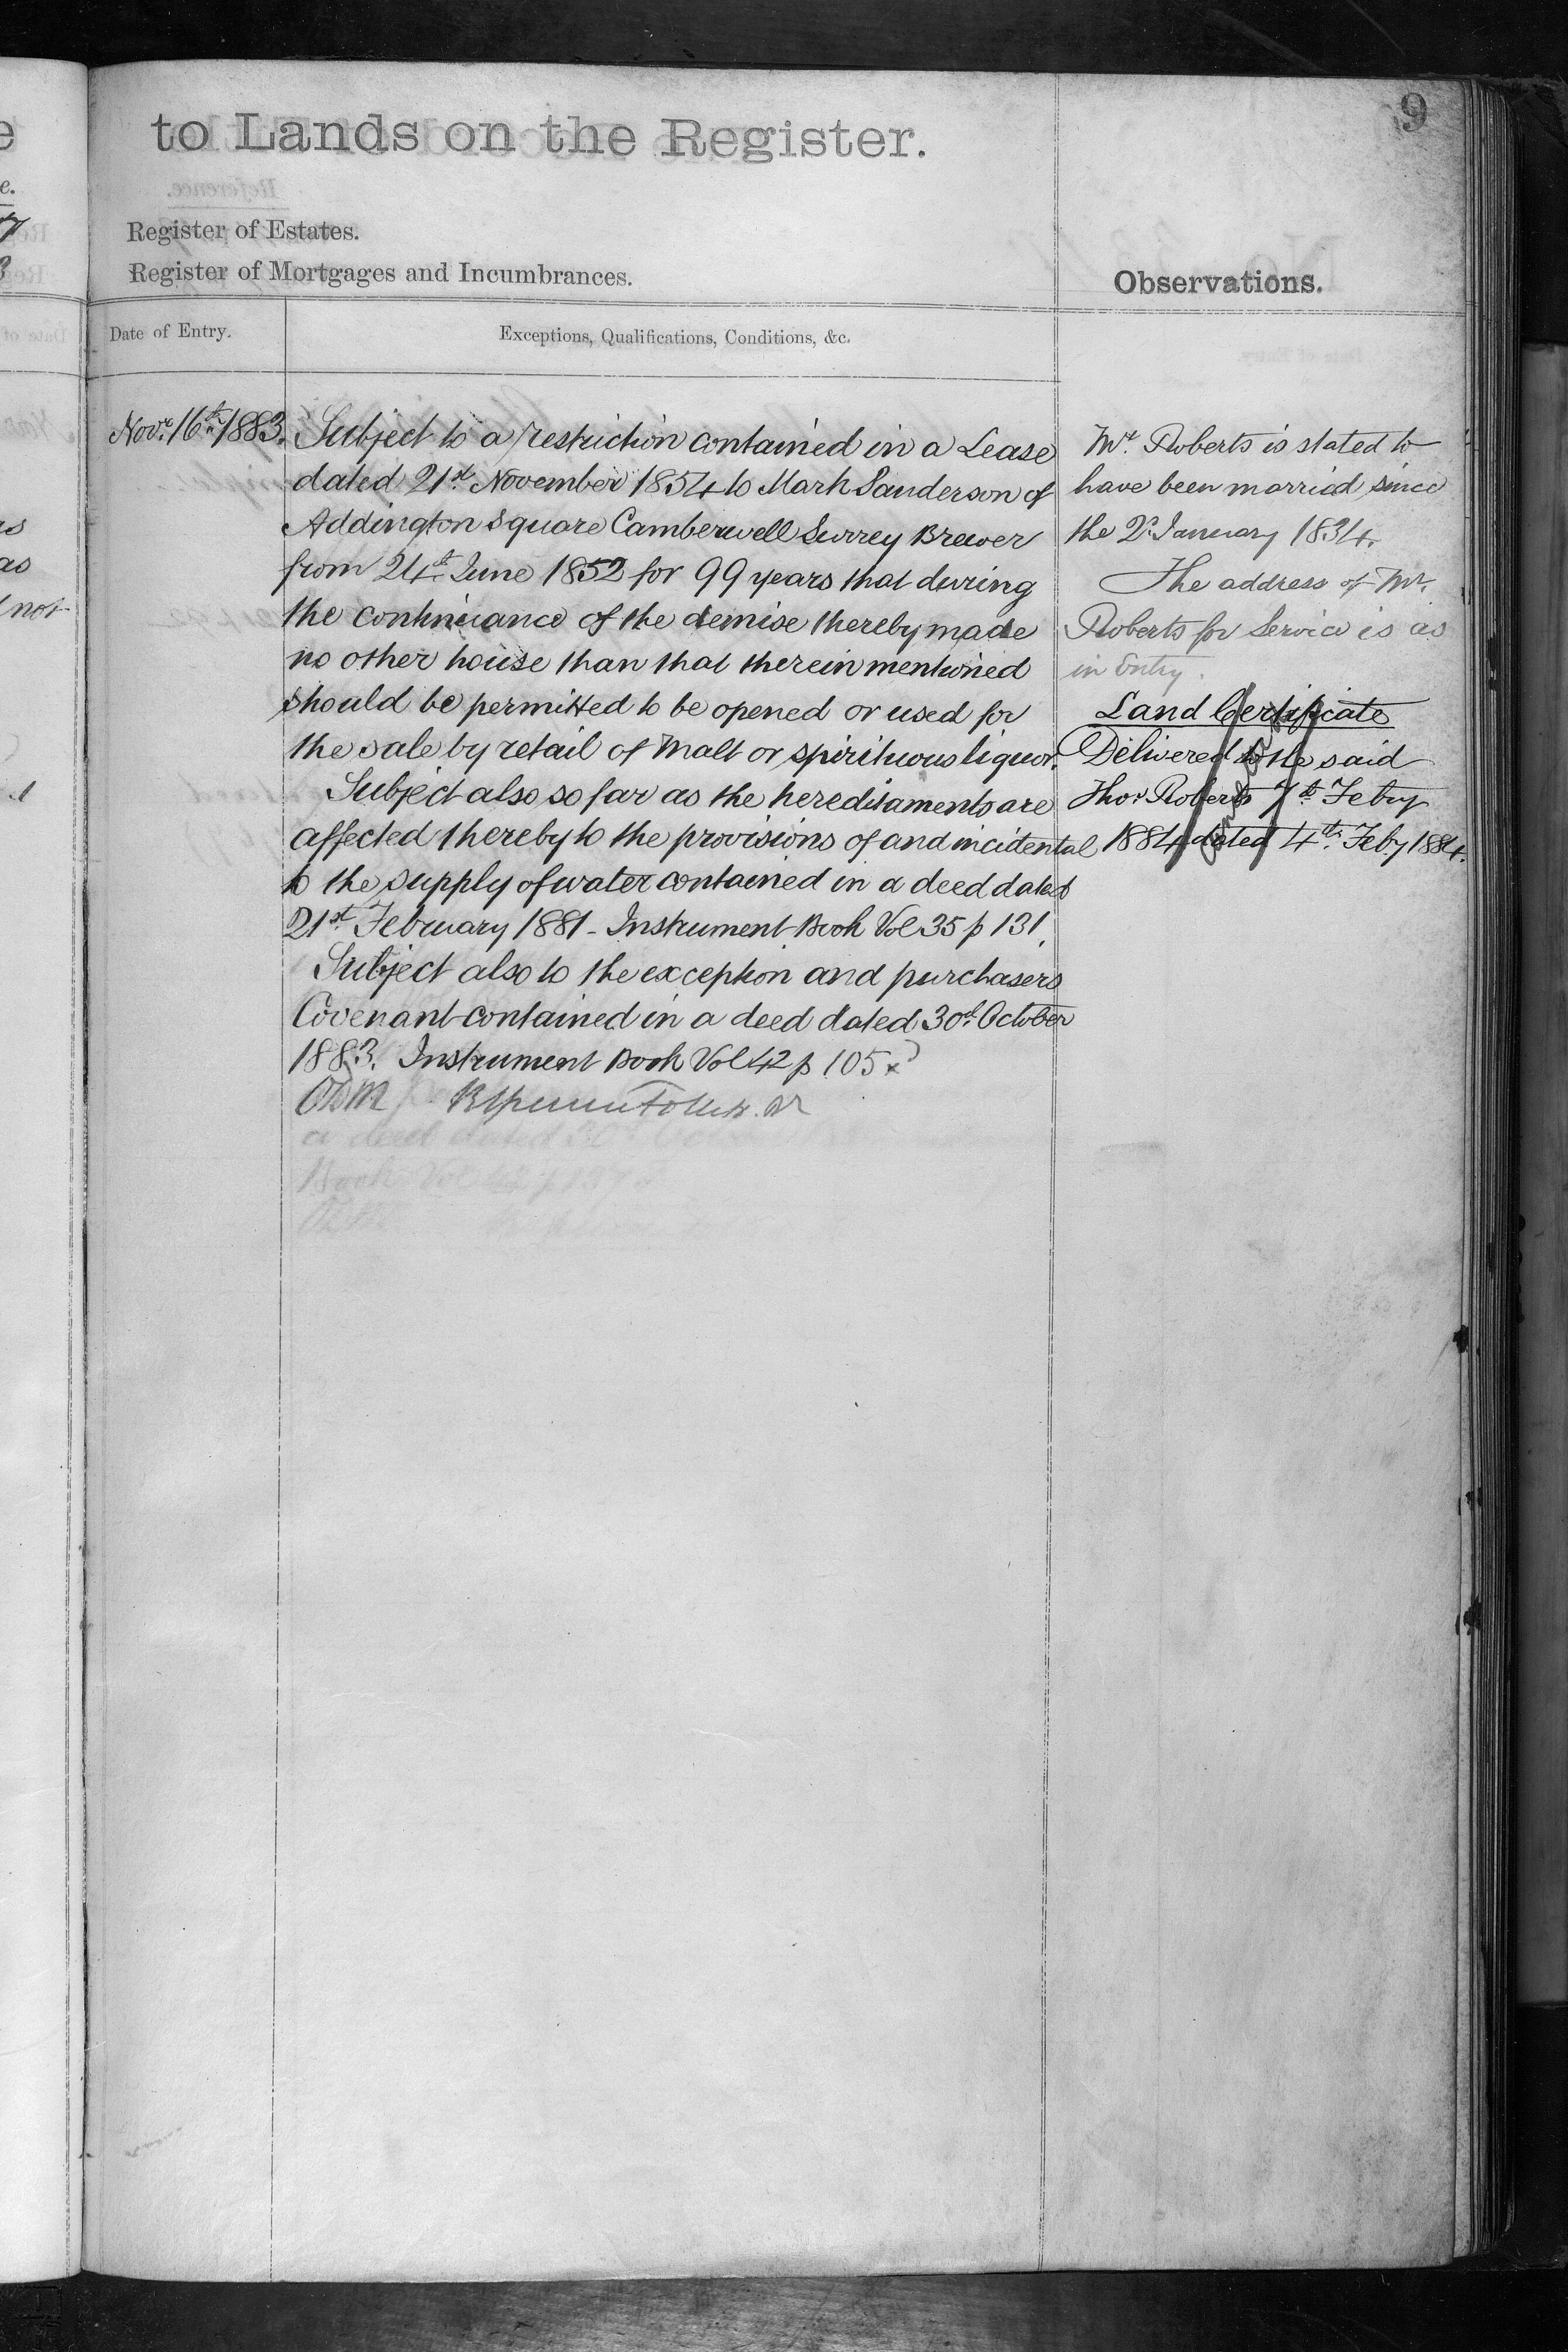 9
to Lands on the Register.
Register of Estates.
Register of Mortgages and Incumbrances.
Observations.
Date of Entry.
Exceptions, Qualifications, Conditions, &c.
Novr. 16th 1883.
Subject to a restriction contained in a Lease
dated 21st November 1854 to Mark Sanderson of
Addington Square Camberwell Surrey Brewer
from 24th June 1852 for 99 years that during
the continuance of the demise thereby made
no other house than that therein mentioned
should be permitted to be opened or used for
the sale by retail of Malt or spirituous liquor.
Subject also so far as the hereditaments are
affected thereby to the provisions of and incidental
to the supply of water contained in a deed dated
21st February 1881 - Instrument Book Vol 35 p 131.
Subject also to the exception and purchasers
Covenant contained in a deed dated 30th October
1883. Instrument Book Vol 42 p 105
Mr. Roberts is stated to
have been married since
the 2d. January 1834.
The address of Mr.
Roberts for Service is as
in Entry.
Land Certificate
Delivered to the said
Thos. Roberts 7th Feby
1884 dated 4th. Feby 1884.